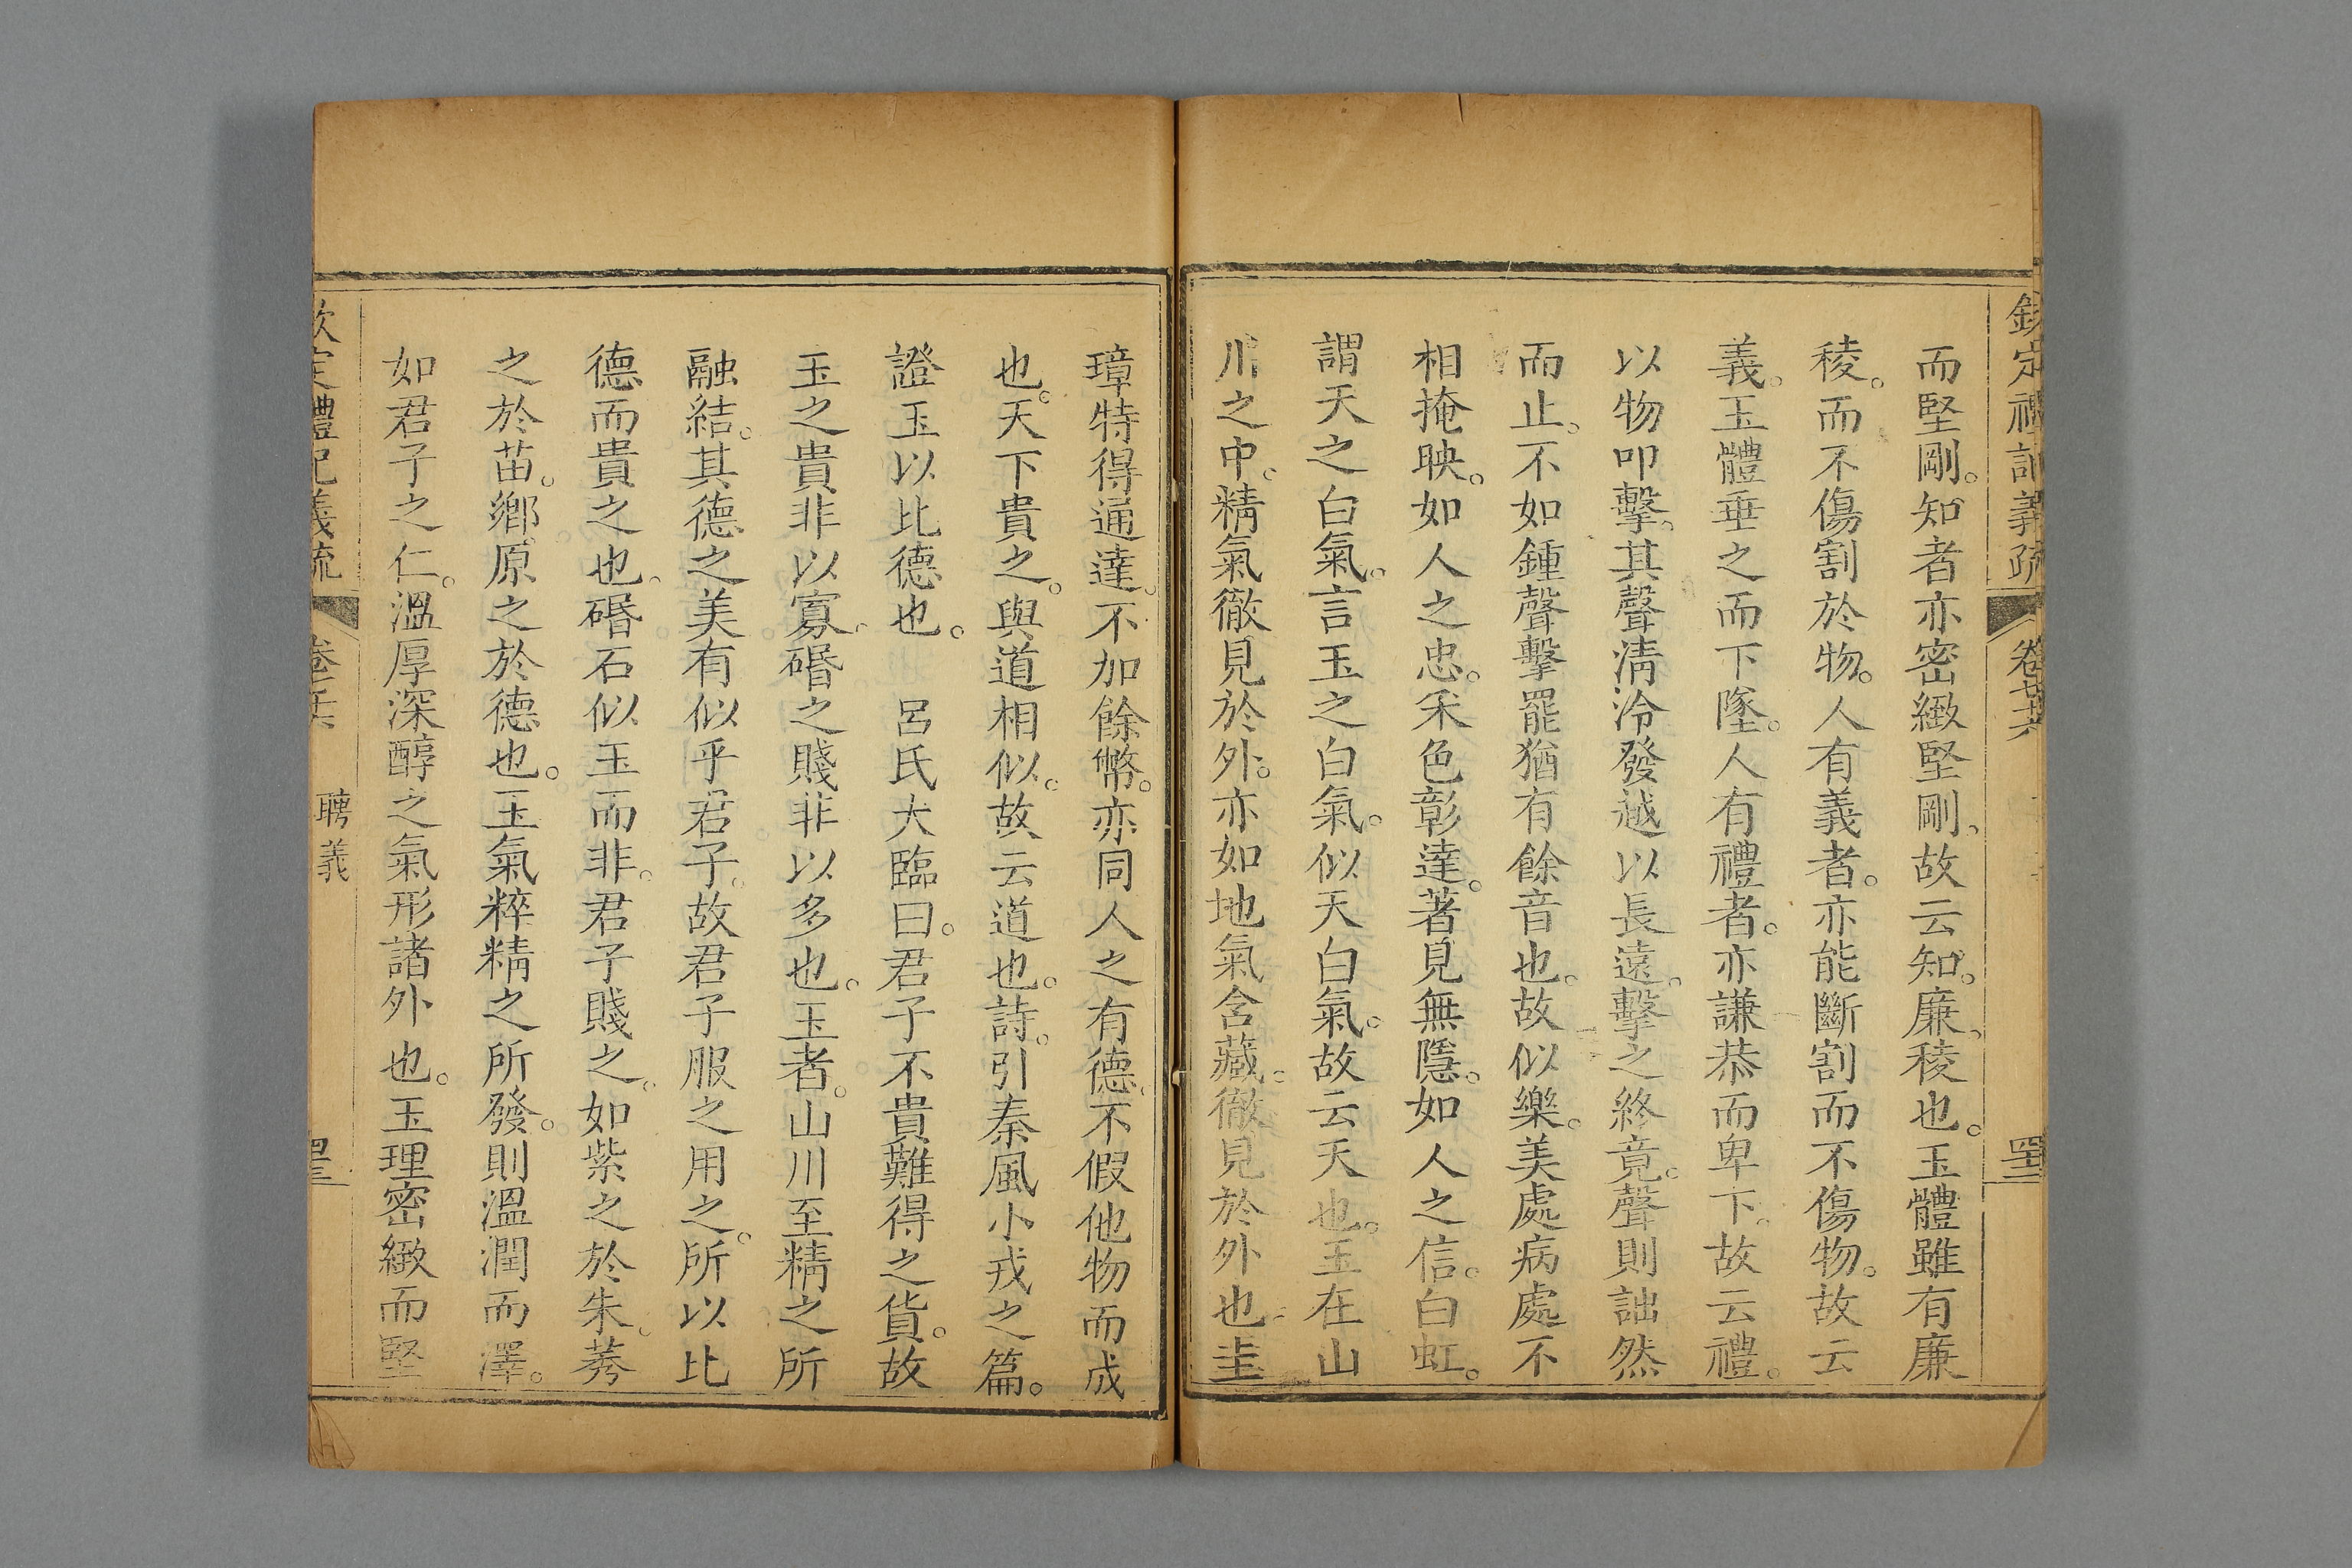 欽定禮記義疏 卷七十六
而堅剛。知者亦密緻堅剛。故云知。廉。稜也。玉體雖有廉
稜。而不傷割於物。人有義者。亦能斷割而不傷物。故云
義。玉體垂之而下墜。人有禮者。亦謙恭而卑下。故云禮。
以物叩擊。其聲清泠發越以長遠。擊之終竟。聲則詘然
而止。不如鍾聲擊罷猶有餘音也。故似樂。美處病處不
相掩映。如人之忠。采色彰達。著見無隱。如人之信。白虹。
謂天之白氣。言玉之白氣。似天白氣。故云天也。玉在山
川之中。精氣徹見於外。亦如地氣含藏。徹見於外也。圭
璋特得通達。不加餘幣。亦同人之有德。不假他物而成
也。天下貴之。與道相似。故云道也。詩。引秦風小戎之篇。
證玉以比德也。 呂氏大臨曰。君子不貴難得之貨。故
玉之貴非以寡。碈之賤非以多也。玉者。山川至精之所
融結。其德之美有似乎君子。故君子服之用之。所以比
德而貴之也。碈石似玉而非。君子賤之。如紫之於朱。莠
之於苗。鄉原之於德也。玉氣粹精之所發。則溫潤而澤。
如君子之仁。溫厚深醇之氣形諸外也。玉理密緻而堅
欽定禮記義疏 聘義